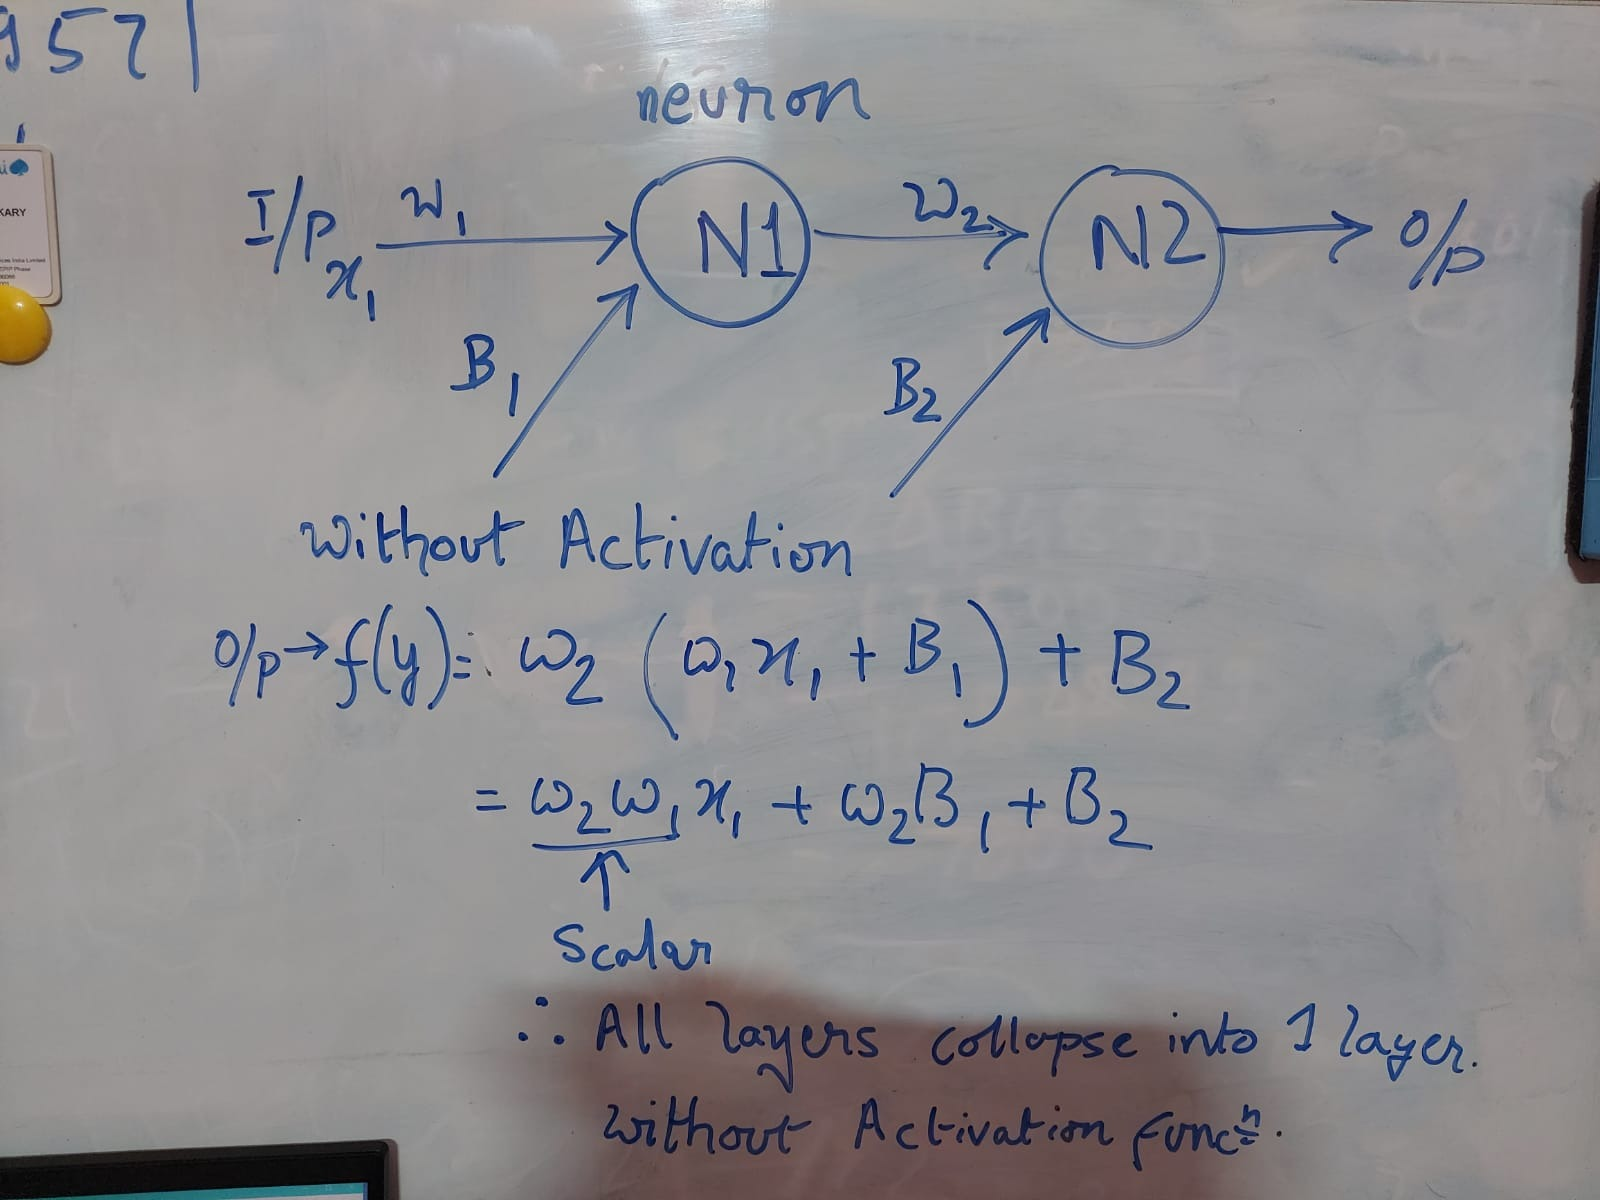 957
neuron
I/P x₁ w₁ N1 w₂ N2 O/P
B₁ B₂
KARY
Without Activation
O/P → f(y) = w₂ (w₁x₁ + B₁) + B₂
= w₂w₁x₁ + w₂B₁ + B₂
↑
Scalar
∴ All layers collapse into 1 layer.
Without Activation funcⁿ.